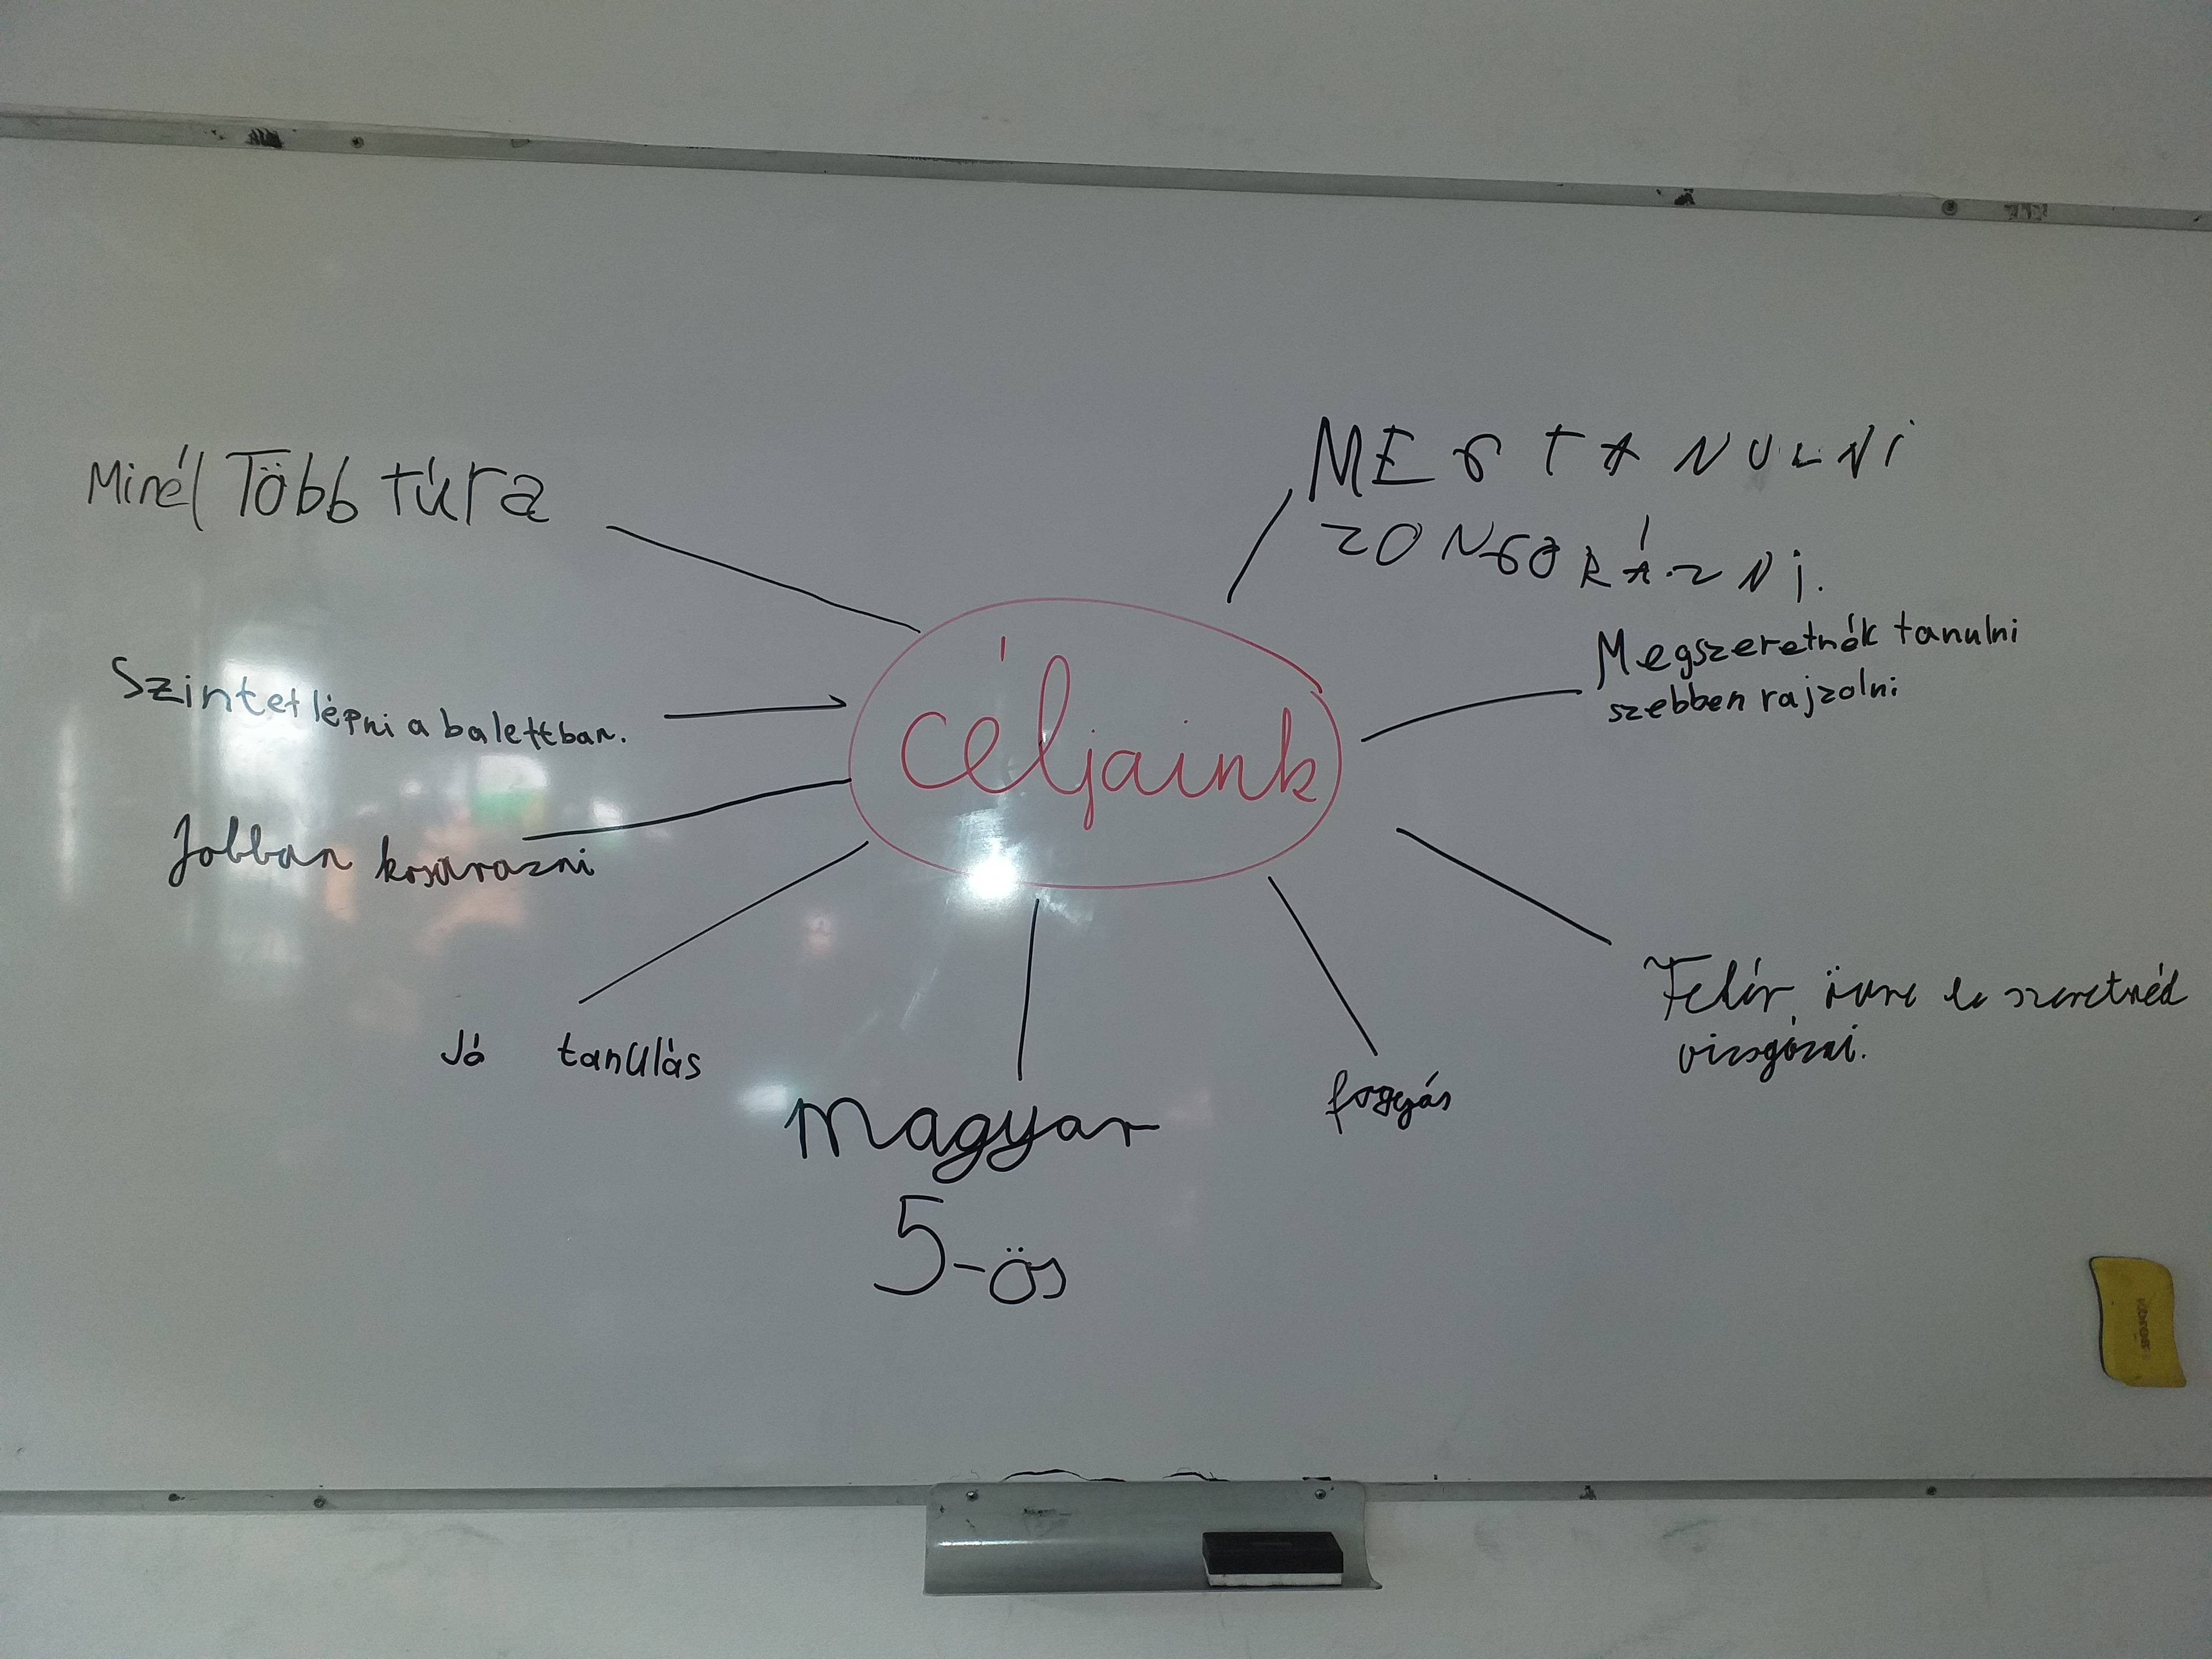 Minél Több túra
MEGTANULNI
ZONGORÁZNI.
Megszeretnék tanulni
szebben rajzolni
Szintet lépni a balettban.
céljaink
Jobban kosarazni
Fehér övre le szeretnéd
vizsgázni.
Jó tanulás
fogyás
Magyar
5-ös